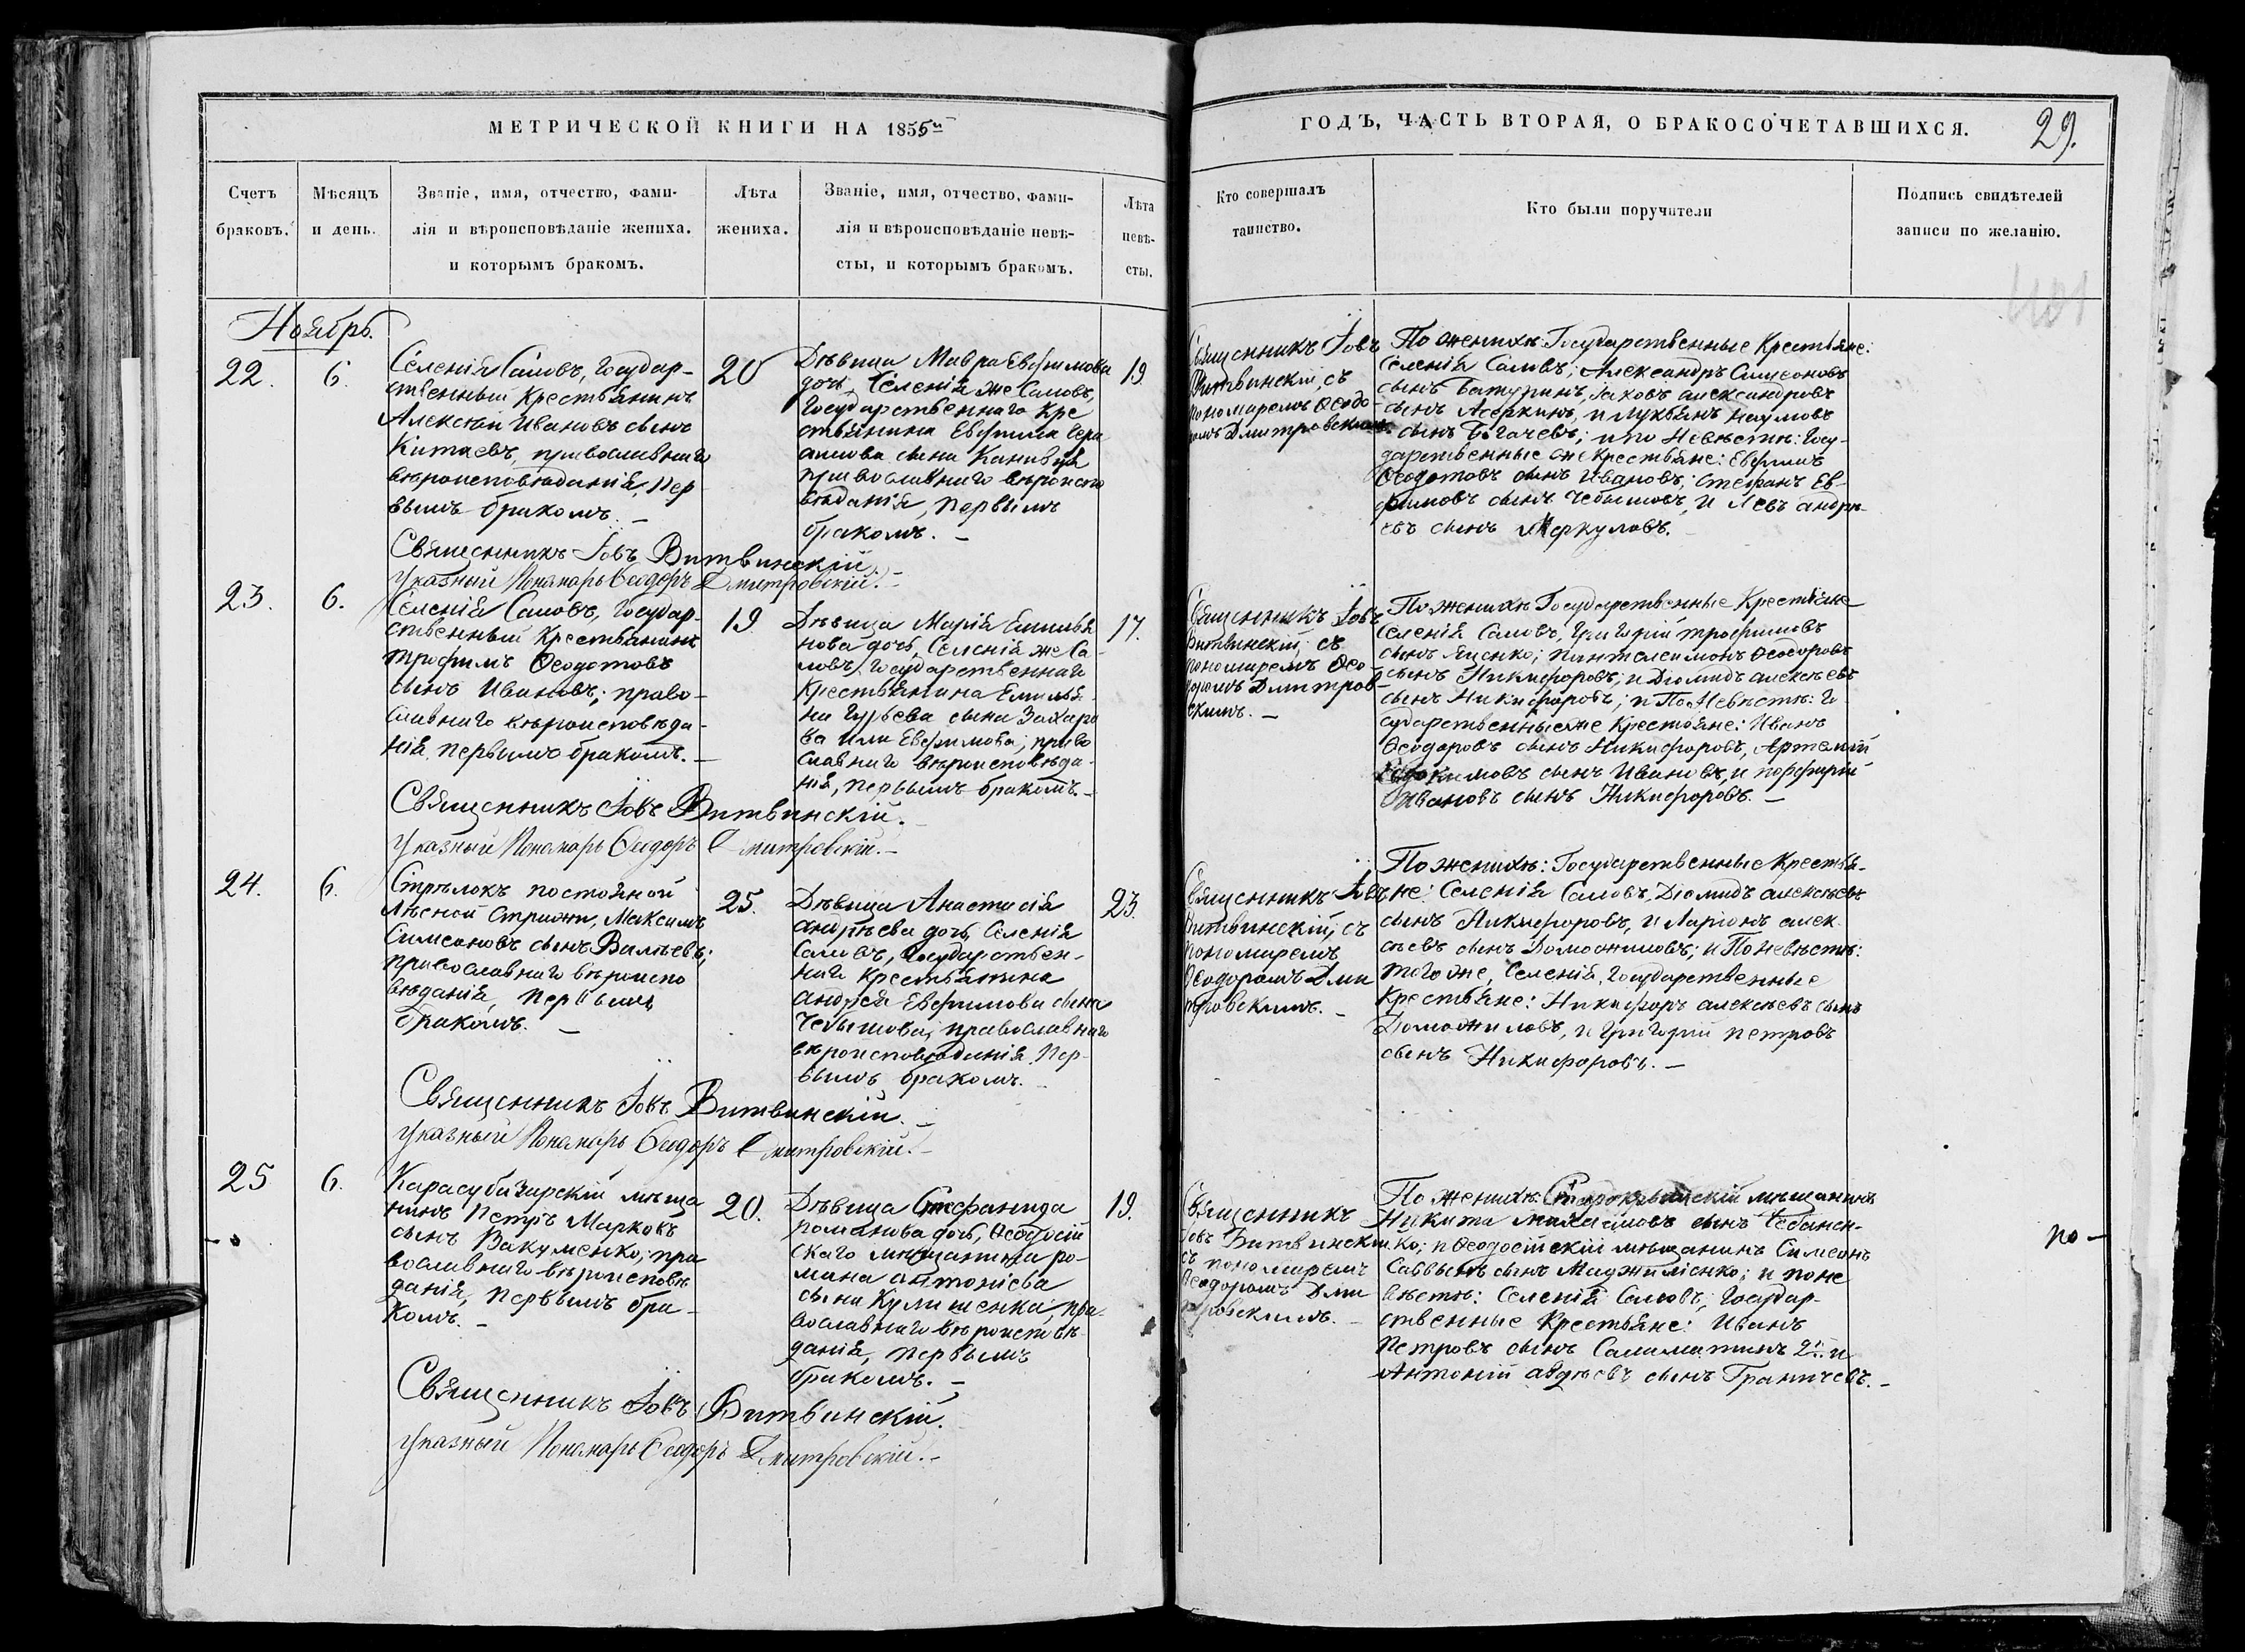 МЕТРИЧЕСКОЙ КНИГИ НА 1855й
ГОДЪ, ЧАСТЬ ВТОРАЯ, О БРАКОСОЧЕТАВШИХСЯ.
29.
Счетъ
браковъ.
Мѣсяцъ
и день.
Званіе, имя, отчество, фами-
лія и вѣроисповѣданіе жениха.
и которымъ бракомъ.
Лѣта
жениха.
Званіе, имя, отчество, фами-
лія и вѣроисповѣданіе невѣ-
сты, и которымъ бракомъ.
Лѣта
невѣ-
сты.
Кто совершалъ
таинство.
Кто были поручители
Подпись свидѣтелей
записи по желанію.
401
Ноябрь.
22.
6.
Селенія Саловъ, Государ-
ственный Крестьянинъ
Алексѣй Ивановъ сынъ
Китаевъ, православнаго
вѣроисповѣданія, пер
вымъ бракомъ. –
20
Дѣвица Мавра Евфимова
дочь, Селенія же Саловъ,
Государственнаго Кре
стьянина Евфима
сына
православнаго вѣроиспо
вѣданія, первымъ
бракомъ. –
19
Священникъ Іовъ
Витвинскій, съ
пономаремъ Ѳеодо-
ромъ Дмитровскимъ.
По женихѣ: Государственные Крестьяне:
Селенія Саловъ; Александръ Симеоновъ
сынъ Батуринъ, Іаковъ Александровъ
сынъ Асеркинъ, и Лукьянъ Наумовъ
сынъ Богачевъ; и по Невѣстѣ: Госу-
дарственные же Крестьяне: Евфимъ
Ѳеодотовъ сынъ Ивановъ, Стефанъ Ев-
фимовъ сынъ Чебышовъ, и Левъ Андре-
евъ сынъ Меркуловъ.
Священникъ Іовъ Витвинскій.
Указный Пономарь Ѳеодоръ Дмитровскій. –
23.
6.
Селенія Саловъ, Государ-
ственный Крестьянинъ
Трофимъ Ѳеодотовъ
сынъ Ивановъ; право-
славнаго вѣроисповѣда-
нія, первымъ бракомъ. –
19
Дѣвица Марія Емилья
нова дочь, Селенія же Са-
ловъ, Государственнаго
Крестьянина Емилья-
на Гурьева сына Захаро
ва или Евфимова; право
славнаго вѣроисповѣда-
нія, первымъ бракомъ. –
17.
Священникъ Іовъ
Витвинскій, съ
пономаремъ Ѳео-
доромъ Дмитров-
скимъ. –
По женихѣ Государственные Крестьяне
Селенія Саловъ, Григорій Трофимовъ
сынъ Яценко; Пантелеимонъ Ѳеодоровъ
сынъ Никифоровъ, и Діомидъ Алексѣевъ
сынъ Никифоровъ; и По Невѣстѣ: Го
сударственные же Крестьяне: Иванъ
Ѳеодоровъ сынъ Никифоровъ, Артемій
Евдокимовъ сынъ Ивановъ, и Порфирій
Ивановъ сынъ Никифоровъ. –
Священникъ Іовъ Витвинскій.
Указный Пономарь Ѳеодоръ Дмитровскій. –
24.
6.
Стрѣлокъ постоянной
лѣсной Стражи, Максимъ
Симеоновъ сынъ Валѣевъ;
православнаго вѣроиспо
вѣданія, первымъ
бракомъ. –
25.
Дѣвица Анастасія
Андрѣева дочь, Селенія
Саловъ, Государствен-
наго Крестьянина
Андрея Евфимова сына
Чебышова, православнаго
вѣроисповѣданія Пер-
вымъ бракомъ. –
23.
Священникъ Іовъ
Витвинскій, съ
пономаремъ
Ѳеодоромъ Дми
тровскимъ. –
По женихѣ: Государственные Крестья-
не: Селенія Саловъ, Діомидъ Алексѣевъ
сынъ Никифоровъ, и Ларіонъ Алек
сѣевъ сынъ Доможиловъ; и По невѣстѣ:
того же, Селенія, Государственные
Крестьяне: Никифоръ Алексѣевъ сынъ
Доможиловъ, и Григорій Петровъ
сынъ Никифоровъ. –
Священникъ Іовъ Витвинскій. –
Указный Пономарь Ѳеодоръ Дмитровскій. –
25
6.
Карасубазарскій мѣща
нинъ Петръ Марковъ
сынъ Вакуменко; пра
вославнаго вѣроисповѣ
данія, первымъ бра-
комъ. –
20.
Дѣвица Стефанида
Романова дочь, Ѳеодосій
скаго мѣщанина Ро-
мана Антоніева
сына Кулишенка, пра-
вославнаго вѣроисповѣ-
данія, первымъ
бракомъ. –
19.
Священникъ
Іовъ Витвинскій
съ пономаремъ
Ѳеодоромъ Дми
тровскимъ. –
По женихѣ: мѣщанинъ
Никита Михаиловъ сынъ Чебанен-
ко; и Ѳеодосійскій мѣщанинъ Симеонъ
Саввинъ сынъ Маджиліенко; и по не
вѣстѣ: Селенія Саловъ, Государ-
ственные Крестьяне: Иванъ
Петровъ сынъ Саламатинъ 2й и
Антоній Авдѣевъ сынъ Граничевъ. –
по –
Священникъ Іовъ Витвинскій.
Указный Пономарь Ѳеодоръ Дмитровскій. –